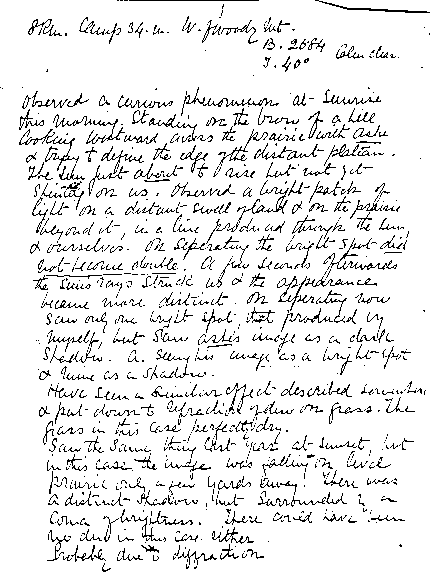 8 Pm. Camp 34. m. W. of Woody Mt.
B. 2684
T. 40° Calm clear.
Observed a curious phenomenon at Sunrise
this morning. Standing on the brow of a hill
looking Westward across the prairie with Ashe
& trying to define the edge of the distant plateau.
The Sun just about to rise but not yet
Shining on us. Observed a bright patch of
light on a distant swell of land & on the prairie
beyond it, in a line produced through the Sun
& ourselves. On Seperating the bright spot did
not become double. A few seconds afterwards
the Suns rays Struck us & the appearance
became more distinct. On Seperating now
Saw only one bright spot, that produced by
myself, but Saw Ashes image as a dark
Shadow. A. Seeing his image as a bright spot
& mine as a Shadow.
Have Seen a Similar effect described somewhere
& put down to refraction of dew on grass. The
grass in this case perfectly dry.
Saw the Same thing last year at Sunset, but
in this case the image was falling on level
prairie only a few yards away. There was
a distinct Shadow, but Surrounded by a
Corna of brightness. There could have been
no dew in this case either.
Probably due to diffraction